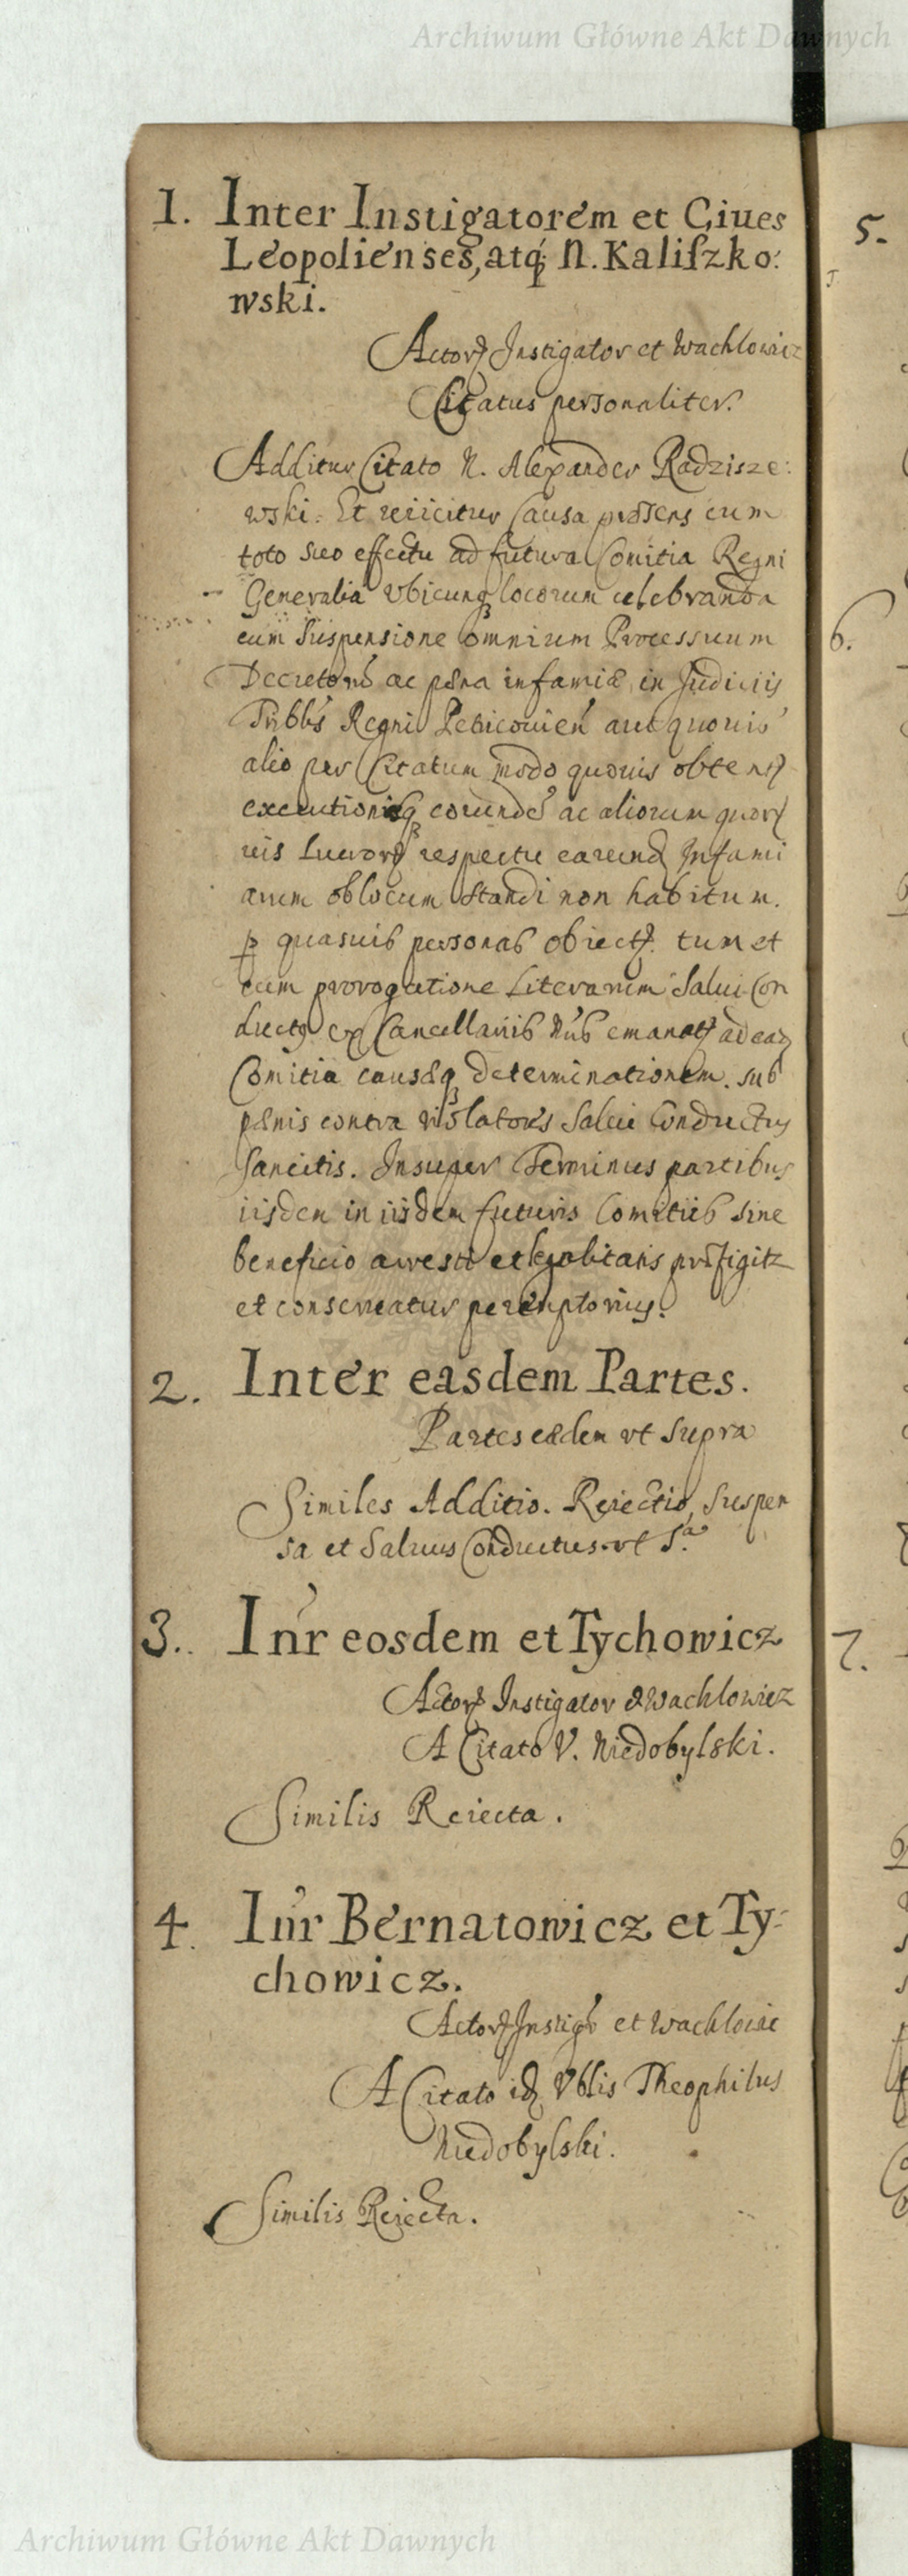 Archiwum Główne Akt Dawnych
1. Inter Instigatorem et Ciues
Leopolienses, atq; N. Kaliszko:
wski.
Actor Instigator et Wachlowicz
Citatus personaliter.
Additur Citato N. Alexander Radzisze:
wski. Et reiicitur Causa præsens cum
toto suo effectu ad futura Comitia Regni
Generalia vbicunq locorum celebranda
cum Suspensione omnium Processuum
Decretorū ac pæna infamiæ in Judiciis
Tribblis Regni Petricouien aut quouis
alio per Citatum modo quouis obtent
executionisq eorundē ac aliorum quor
uis respectu earund Infami
arum ob locum Standi non habitum.
p quasuis personas obiect. tum et
cum prorogatione Literarum Salui Con
ductq ex Cancellariis emanat ad eaq
Comitia causæq determinationem. sub
pænis contra violatores Salui Conductus
Sancitis. Insuper Terminus partibus
iisdem in iisdem futuris Comitiis sine
beneficio arresti et præfigit
et conseruatur peremptorius.
2. Inter easdem Partes.
Partes eædem vt Supra
Similes Additio. Reiectio, Suspen
sa et Saluus Conductus vt S.a
3. Inr eosdem et Tychowicz
Actor Instigator & Wachlowicz
A Citato V. Niedobylski.
Similis Reiecta.
4. Inr Bernatowicz et Ty:
chowicz.
Actor Instigr et Wachlowic
A Citato id Vblis Theophilus
Niedobylski.
Similis Reiecta.
5.
6.
7.
Archiwum Główne Akt Dawnych